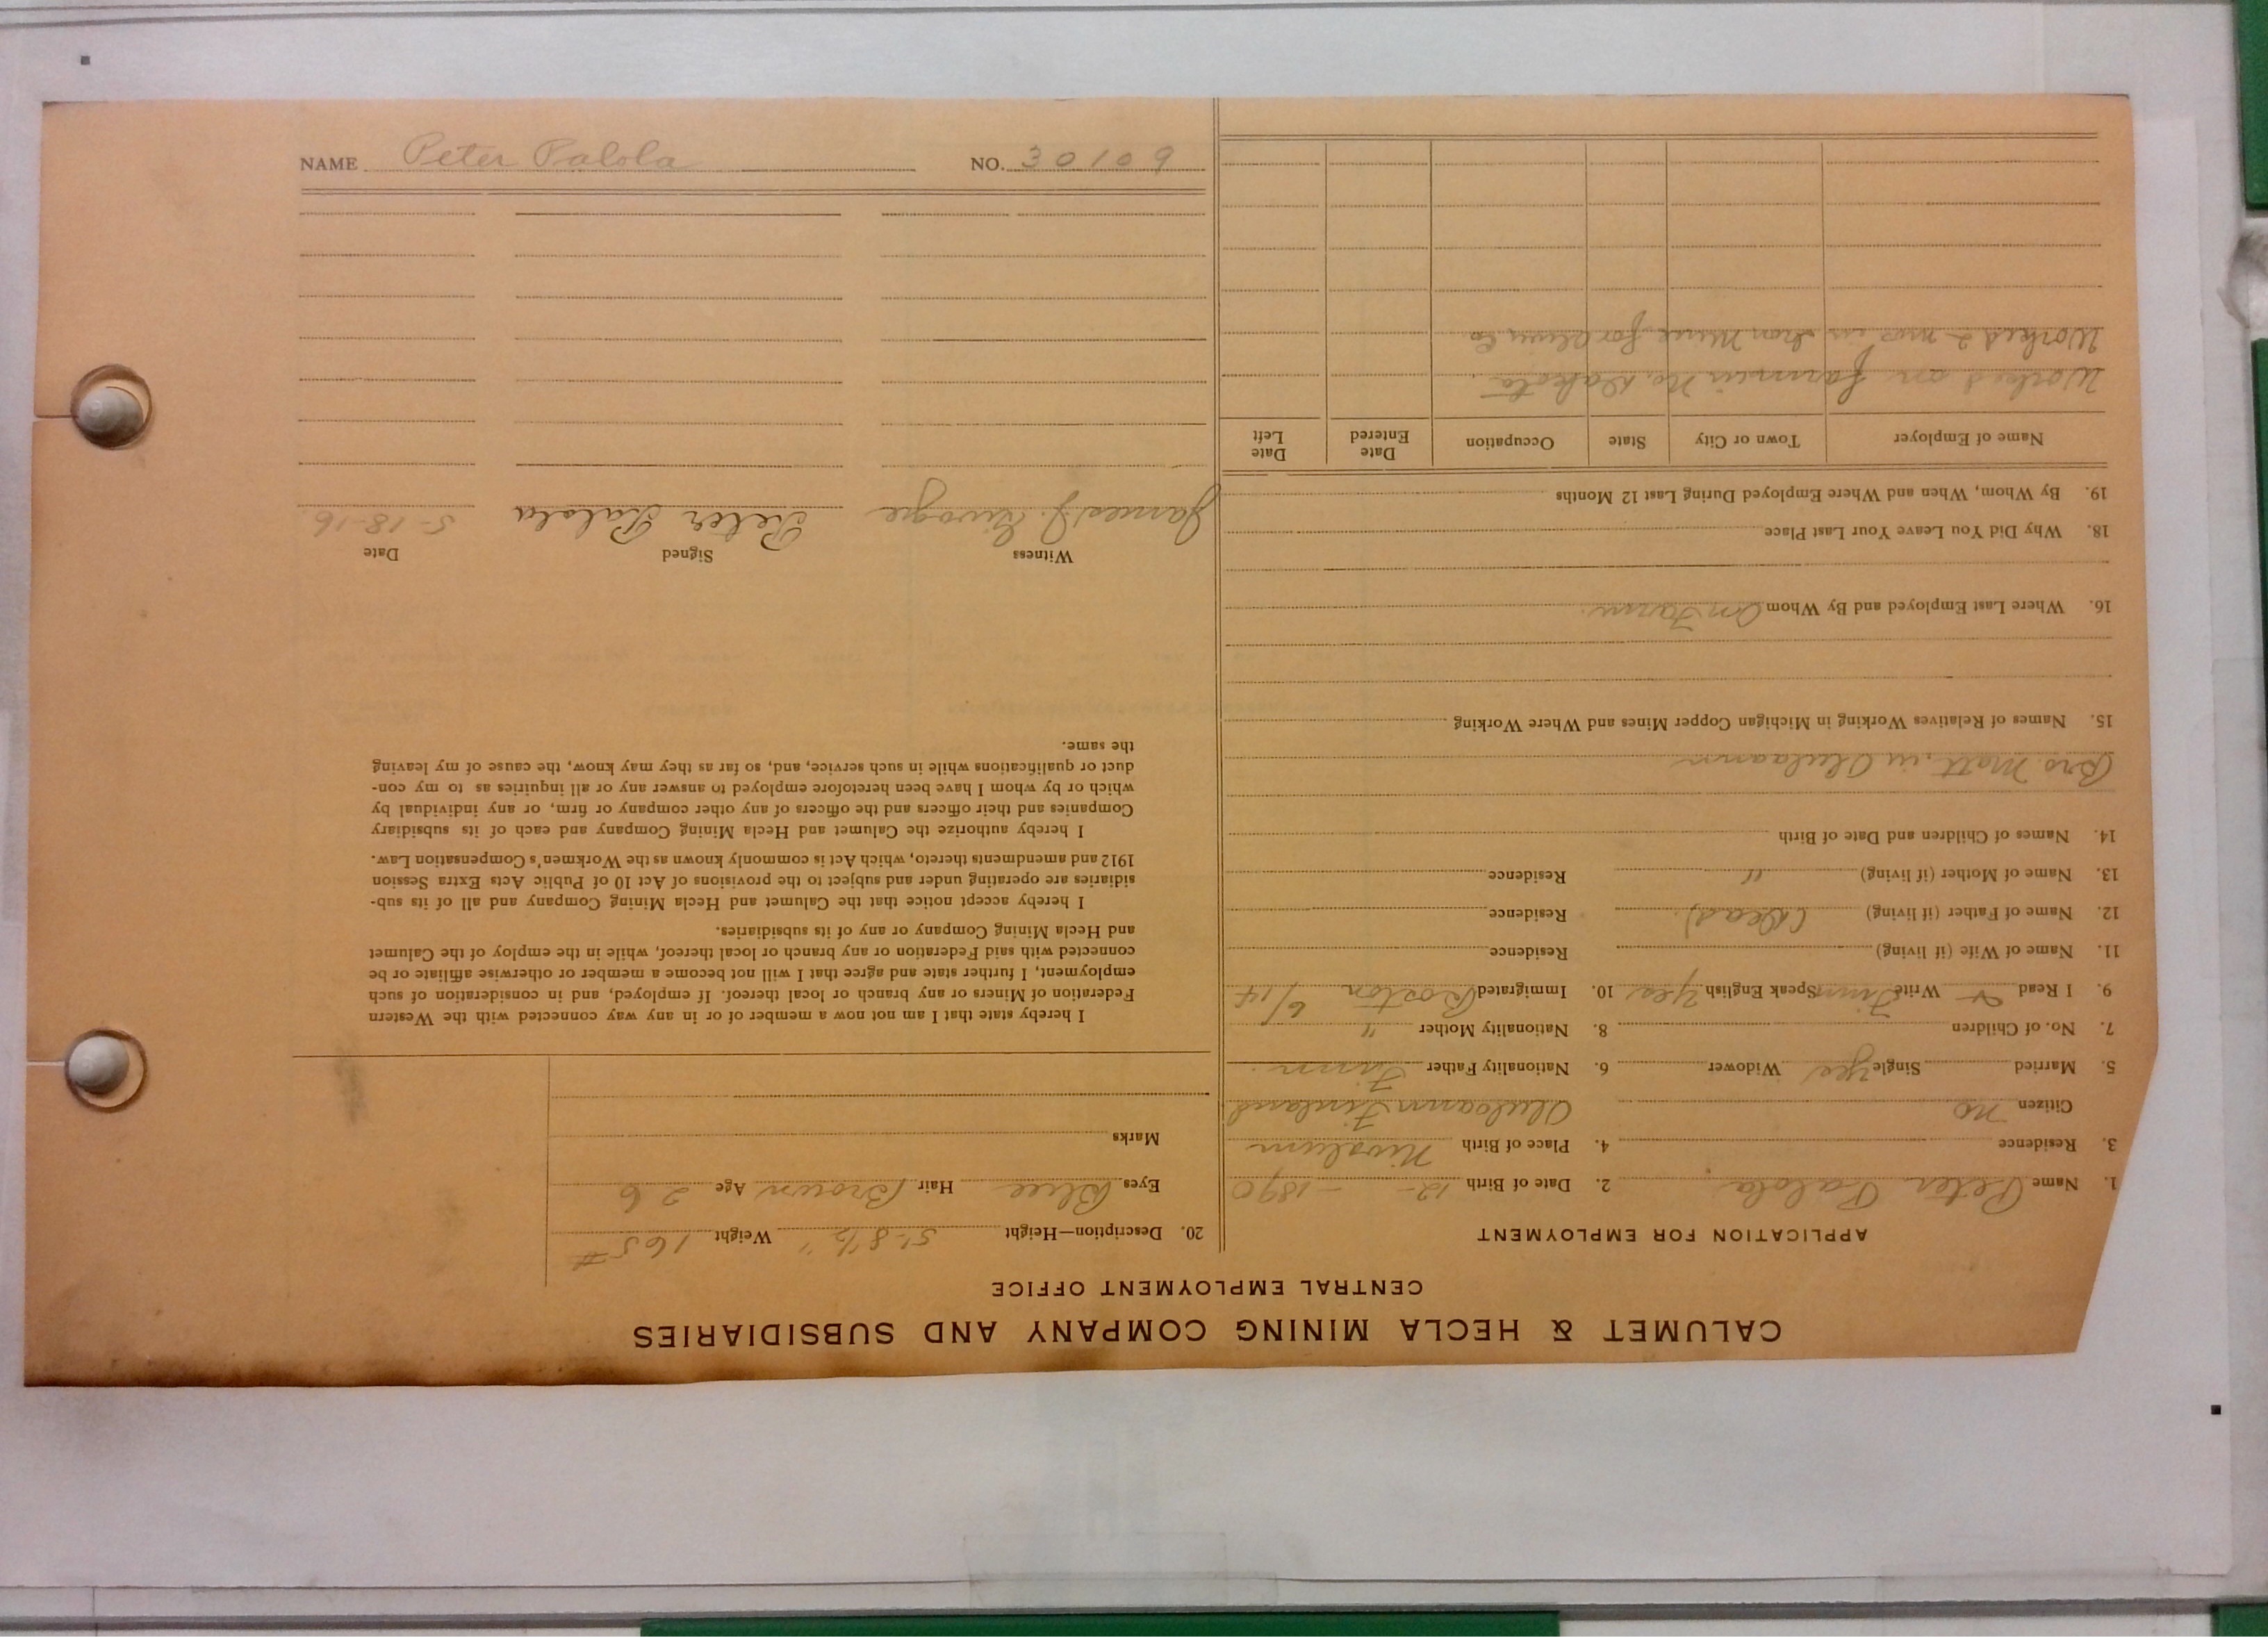 CALUMET & HECLA MINING COMPANY AND SUBSIDIARIES
CENTRAL EMPLOYMENT OFFICE
APPLICATION FOR EMPLOYMENT
1. Name Peter Palola 2. Date of Birth 12 - - 1890
3. Residence 4. Place of Birth
Citizen no Finland
5. Married Single yes Widower 6. Nationality Father Finn.
7. No. of Children 8. Nationality Mother "
9. I Read & Write Finn Speak English yes 10. Immigrated Boston 6/14
11. Name of Wife (if living) Residence
12. Name of Father (if living) (Dead) Residence
13. Name of Mother (if living) " Residence
14. Names of Children and Date of Birth
Bro. Matt in
15. Names of Relatives Working in Michigan Copper Mines and Where Working
16. Where Last Employed and By Whom On Farm.
18. Why Did You Leave Your Last Place
19. By Whom, When and Where Employed During Last 12 Months
Name of Employer Town or City State Occupation Date Entered Date Left
Worked on farm in No. Dakota.
Worked 2 mos in Iron Mine for Oliver Co.
20. Description—Height 5'-8 1/2" Weight 165 #
Eyes Blue Hair Brown Age 26
Marks
I hereby state that I am not now a member of or in any way connected with the Western
Federation of Miners or any branch or local thereof. If employed, and in consideration of such
employment, I further state and agree that I will not become a member or otherwise affiliate or be
connected with said Federation or any branch or local thereof, while in the employ of the Calumet
and Hecla Mining Company or any of its subsidiaries.
I hereby accept notice that the Calumet and Hecla Mining Company and all of its sub-
sidiaries are operating under and subject to the provisions of Act 10 of Public Acts Extra Session
1912 and amendments thereto, which Act is commonly known as the Workmen's Compensation Law.
I hereby authorize the Calumet and Hecla Mining Company and each of its subsidiary
Companies and their officers and the officers of any other company or firm, or any individual by
which or by whom I have been heretofore employed to answer any or all inquiries as to my con-
duct or qualifications while in such service, and, so far as they may know, the cause of my leaving
the same.
Witness Signed Date
James J. Peter Palola 5-18-16
NAME Peter Palola NO. 30109